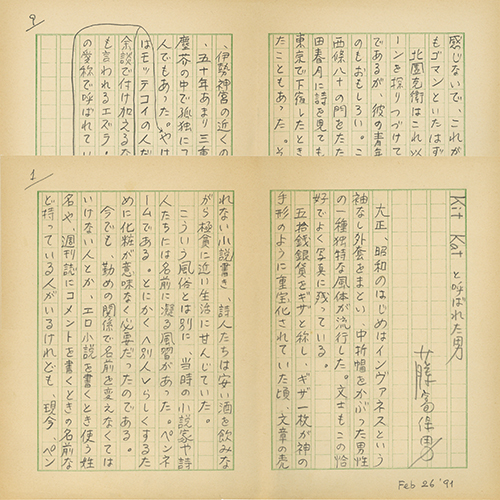 9
感じないで、これが
もゴマンといたはず
北園克衛はこれ以
ーンを探りつづけて
であるが、彼の青年
のもおもしろい。こ
西條八十の門をたた
田春月に詩を見ても
東京で下宿したとき
たこともあった。そ
、伊勢神宮の近くの
、五十年あまり三重
塵芥の中で孤独に
人でもあった。やけ
はモッテコイの人だ
余談で付け加えるな
も言われるエズラ・
の愛称で呼ばれてい
1
Kit Katと呼ばれた男
藤富保男
大正、昭和のはじめはインヴァネスという
袖なし外套をまとい、中折帽をかぶった男性
の一種独特な風体が流行した。文士もこの恰
好でよく写真に残っている。
五拾銭銀貨をギザと称し、ギザ一枚が神の
手形のように重宝化されていた頃、文章の売
れない小説書き、詩人たちは安い酒を飲みな
がら極貧に近い生活に甘んじていた。
こういう風俗とは別に、当時の小説家や詩
人たちには名前に凝る風習があった。ペンネ
ームである。とにかく〈別人〉らしくするた
めに化粧が意味なく必要だったのである。
今でも、勤めの関係で名前を変えなくては
いけない人とか、エロ小説を書くとき使う姓
名や、週刊誌にコメントを書くときの名前な
ど持っている人がいるけれども、現今、ペン
Feb 26 '91